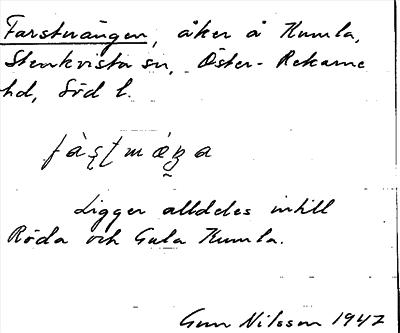 Farstuängen, åker å Kumla,
Stenkvista sn, Öster-Rekarne
hd, Söd l.
Ligger alldeles intill
Röda och Gula Kumla.
Gun Nilsson 1947